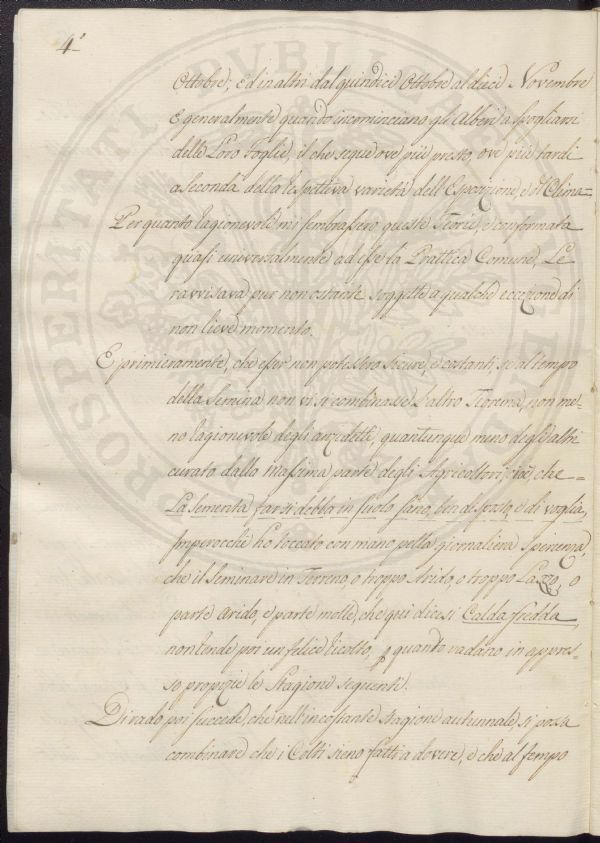 4.
Ottobre; ed in altri dal quindici Ottobre al dieci Novembre
E generalmente quando incominciano gli Alberi a spogliarsi
delle Loro Foglie, il che segue ove più presto, ove più tardi
a seconda della respettiva varietà dell'Esposizione, e del Clima=
Per quanto ragionevoli mi sembrassero queste Teorie, e conformata
quasi universalmente ad esse la Prattica Comune, Le
ravvisava pur non ostante soggette a qualche eccezione di
non lieve momento.
E primieramente, che esser non potessero sicure, e costanti, se al tempo
della Semina non vi si combinasse L'altro Teorema, non me=
no ragionevole degli anzidetti, quantunque meno degli altri
curato dalla Massima parte degli Agricoltori, cioè, che =
La Sementa farsi debba in suolo sano, ben disposto, e di voglia,
Imperocchè ho toccato con mano nella giornaliera sperienza,
che il Seminare in Terreno, o troppo Arido, o troppo Lazzo, o
parte Arido, e parte molle, che qui dicesi Calda fredda,
non rende poi un felice ricolto, p quanto vadano in appres=
so propizie le Stagioni seguenti.
Di rado poi succede, che nell'incostante stagione autunnale, si possa
combinare che i Colti sieno fatti a dovere, e che al tempo
PROSPERITATI PUBLICAE